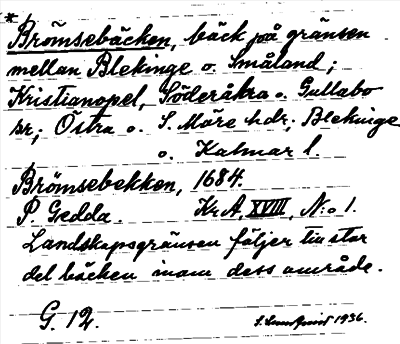 *
Brömsebäcken, bäck på gränsen
mellan Blekinge o. Småland;
Kristianopel, Söderåkra o. Gullabo
sr; Östra o. S. Möre hdr; Blekinge
o. Kalmar l.
Brömsebekken, 1684.
P. Gedda. KrA, XVIII, N:o 1.
Landskapsgränsen följer till stor
del bäcken inom dess område.
G. 12. S. Lundqvist 1936.